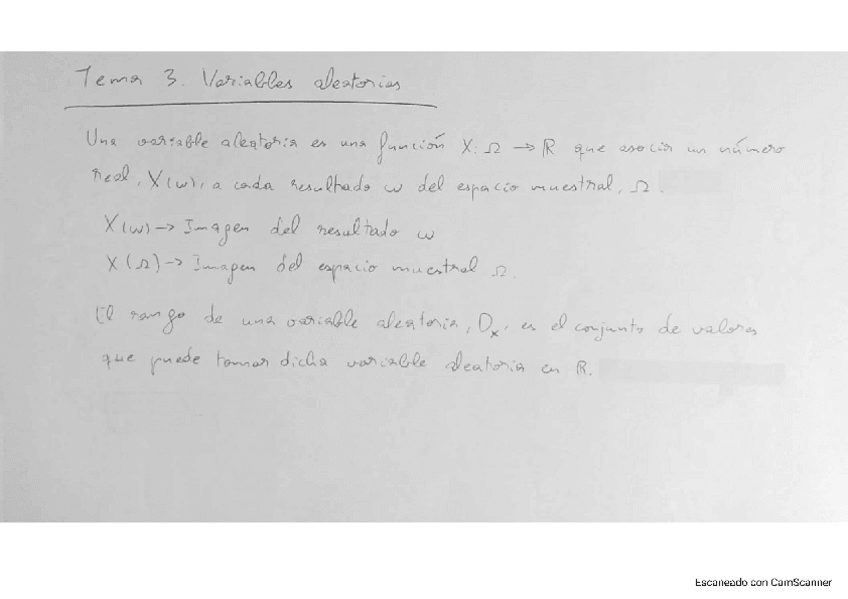 Tema 3. Variables aleatorias
Una variable aleatoria es una función X: Ω → ℝ que asocia un número
real, X(ω), a cada resultado ω del espacio muestral, Ω.
X(ω) → Imagen del resultado ω
X(Ω) → Imagen del espacio muestral Ω.
El rango de una variable aleatoria, Dx, es el conjunto de valores
que puede tomar dicha variable aleatoria en ℝ.
Escaneado con CamScanner